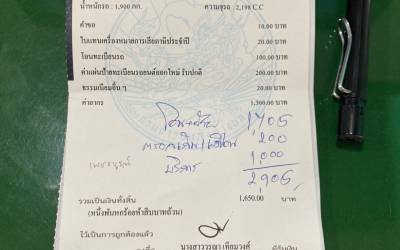 น้ำหนักรถ : 1,900 กก. ความจุรถ : 2,198 C.C
ค่าขอ 10.00 บาท
ใบแทนเครื่องหมายการเสียภาษีประจำปี 20.00 บาท
โอนทะเบียนรถ 100.00 บาท
ค่าแผ่นป้ายทะเบียนรถยนต์ออกใหม่ รับปกติ 200.00 บาท
ธรรมเนียมอื่น ๆ 20.00 บาท
ค่าอากร 1,300.00 บาท
1,705
200
เพชรบูรณ์ บริการ 1,000
2,905
รวมเป็นเงินทั้งสิ้น 1,650.00 บาท
(หนึ่งพันหกร้อยห้าสิบบาทถ้วน)
ไว้เป็นการถูกต้องแล้ว
นางสาววรุณา เทียมวงศ์